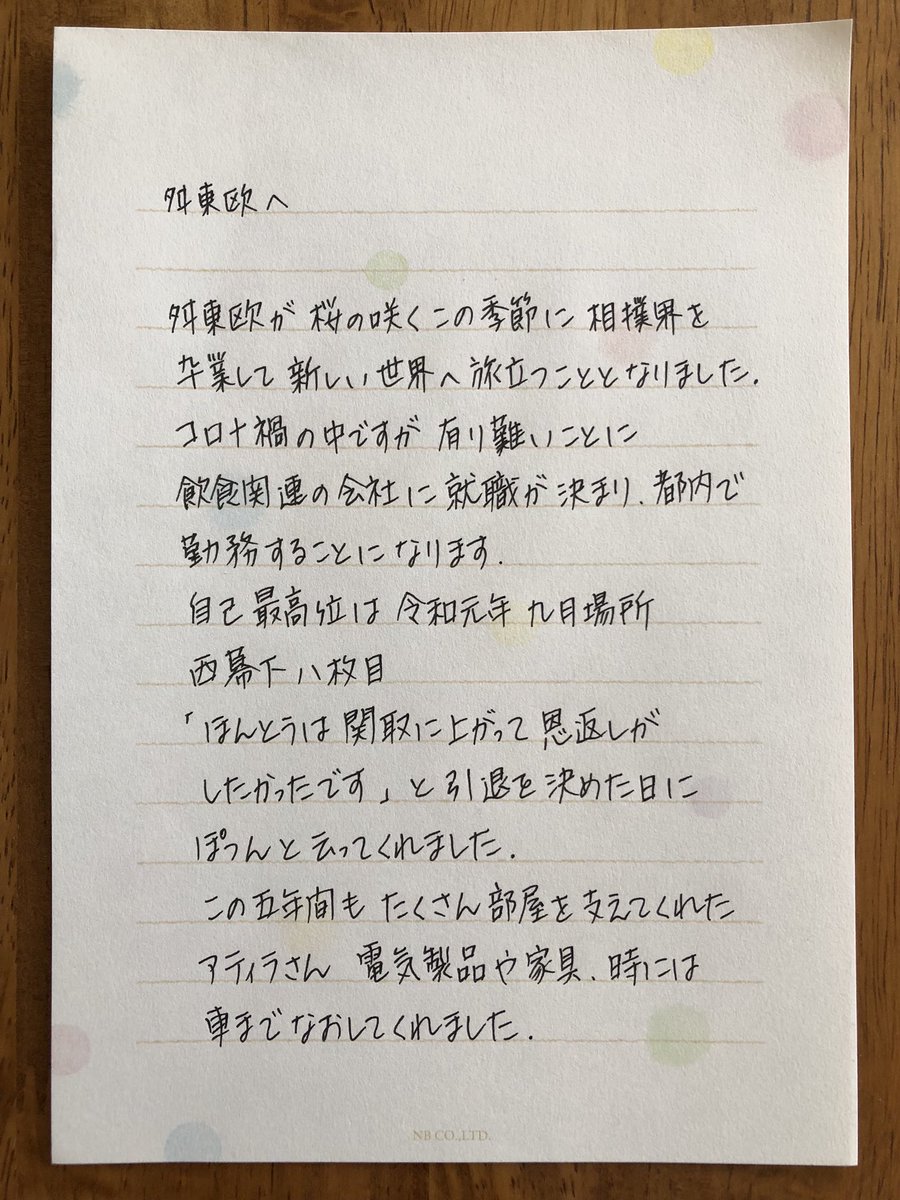 舛東欧へ
舛東欧が 桜の咲くこの季節に 相撲界を
卒業して 新しい世界へ旅立つこととなりました.
コロナ禍の中ですが 有り難いことに
飲食関連の会社に就職が決まり、都内で
勤務することになります.
自己最高位は 令和元年 九月場所
西幕下八枚目
「ほんとうは関取に上がって恩返しが
したかったです」と引退を決めた日に
ぽつんと云ってくれました.
この五年間も たくさん部屋を支えてくれた
アティラさん 電気製品や家具、時には
車までなおしてくれました.
NB CO.,LTD.